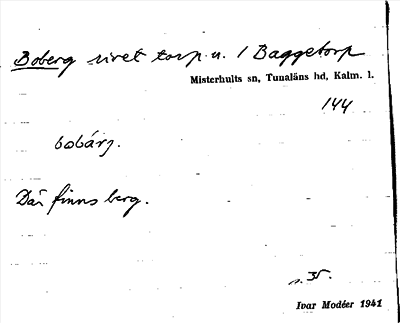 Boberg rivet torp u. 1 Baggetorp
Misterhults sn, Tunaläns hd, Kalm. l.
144
bobárj.
Där finns berg.
s. 35.
Ivar Modéer 1941